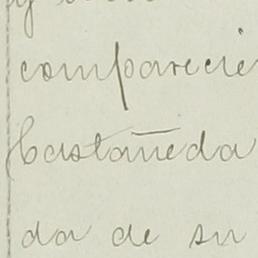 y
comparecie
Castañeda
da de su